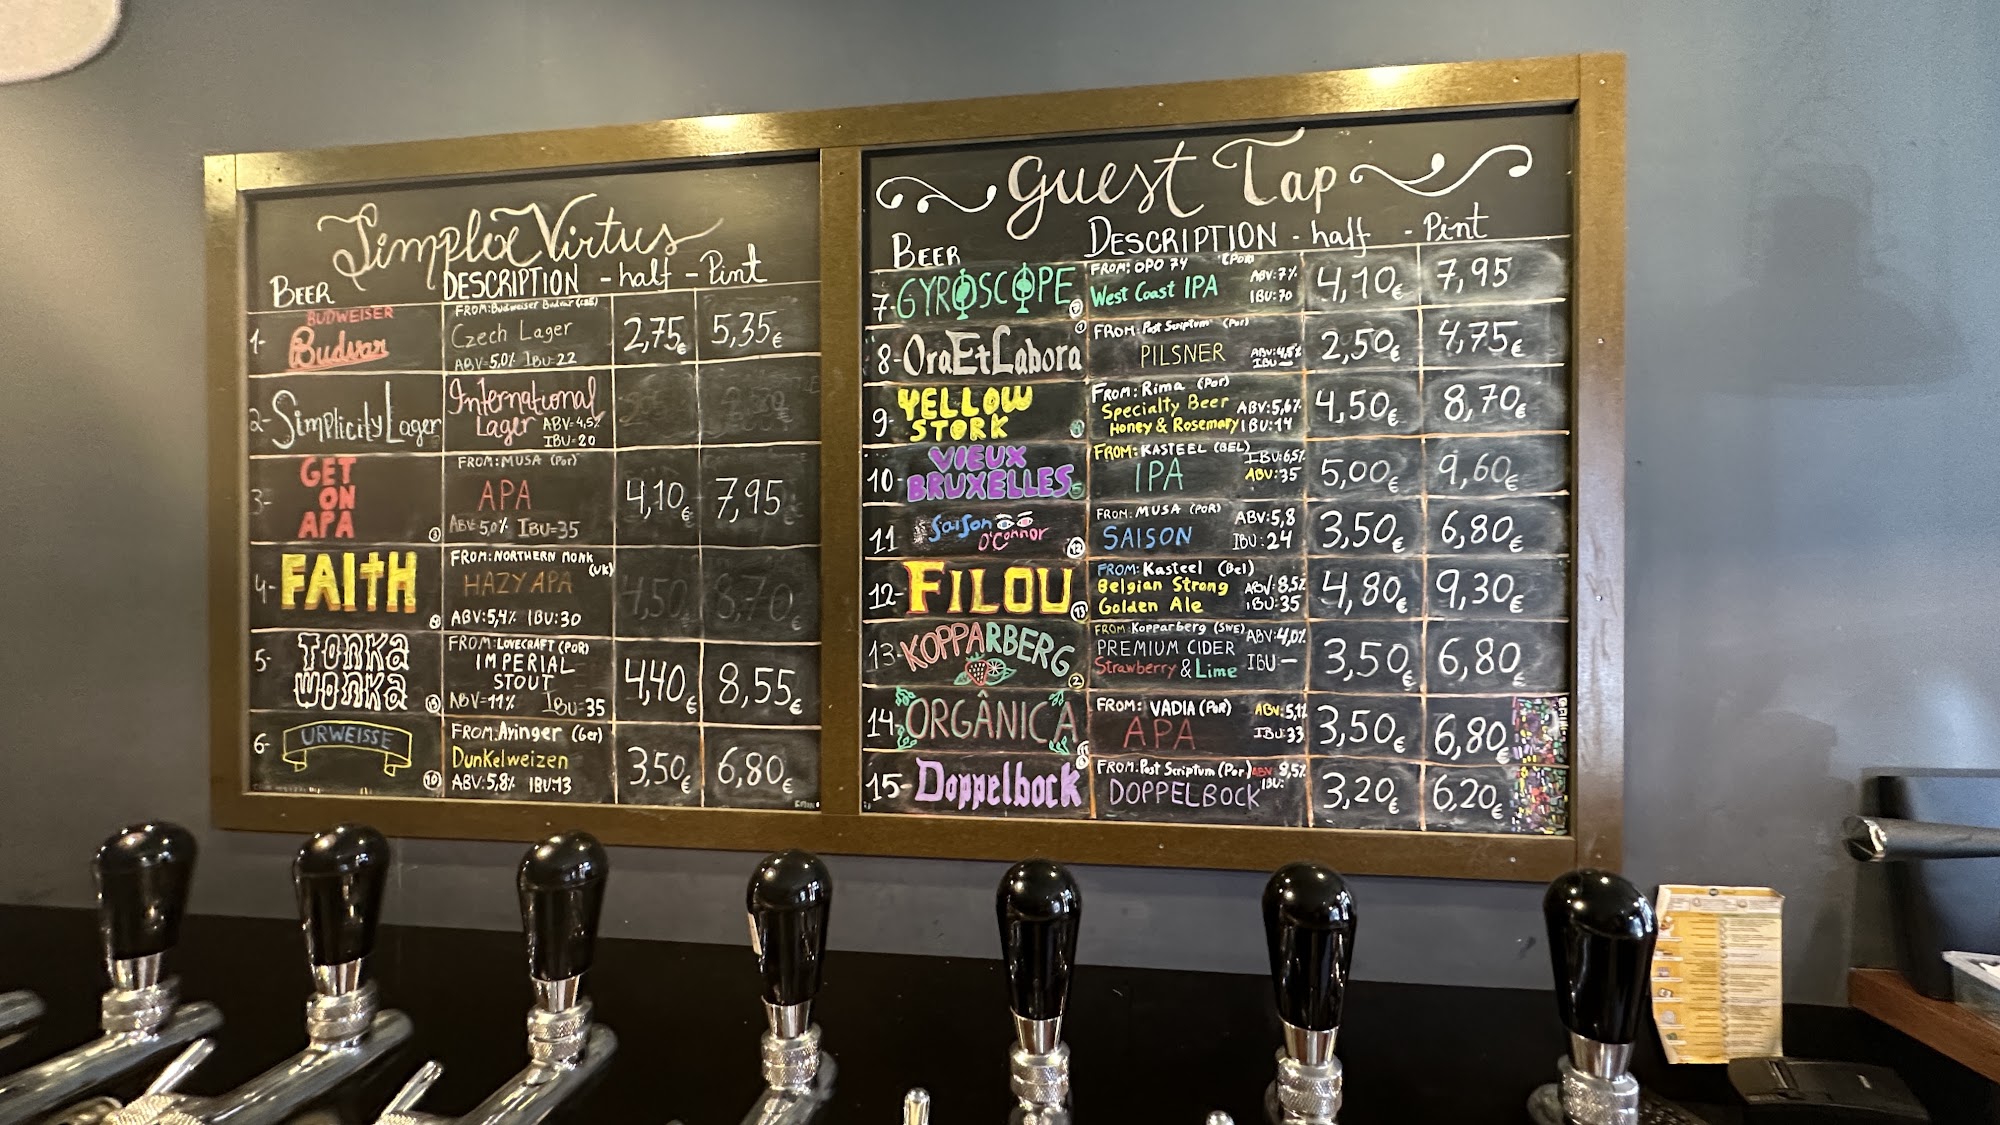 Simplex Virtus
BEER DESCRIPTION - half - Pint
1- BUDWEISER
Budvar
FROM: Budweiser Budvar
Czech Lager
ABV=5,0% IBU=22
2,75€ 5,35€
2- Simplicity Lager
International
Lager ABV=4,5%
IBU=20
3- GET
ON
APA
FROM: MUSA (Por)
APA
ABV=5,0% IBU=35
4,10€ 7,95
4- FAITH
FROM: NORTHERN MONK
(UK)
HAZY APA
ABV:5,4% IBU:30
4,50€ 8,70€
5- TONKA
WONKA
FROM: LOVECRAFT (POR)
IMPERIAL
STOUT
ABV=11% IBU=35
4,40€ 8,55€
6- URWEISSE
FROM: Ayinger (Ger)
Dunkelweizen
ABV:5,8% IBU:13
3,50€ 6,80€
Guest Tap
BEER DESCRIPTION - half - Pint
7- GYROSCOPE
FROM: OPO 74 (POR)
West Coast IPA
ABV:7%
IBU:70
4,10€ 7,95
8- Ora Et Labora
FROM: Post Scriptum (Por)
PILSNER
ABV:4,8%
IBU —
2,50€ 4,75€
9- YELLOW
STORK
FROM: Rima (Por)
Specialty Beer ABV:5,6%
Honey & Rosemary IBU:14
4,50€ 8,70€
10- VIEUX
BRUXELLES
FROM: KASTEEL (BEL)
IPA
IBU:6,5%
ABV:35
5,00€ 9,60€
11 Saison
O'Connor
FROM: MUSA (POR)
SAISON
ABV:5,8
IBU:24
3,50€ 6,80€
12- FILOU
FROM: Kasteel (Bel)
Belgian Strong
Golden Ale
ABV:8,5%
IBU:35
4,80€ 9,30€
13- KOPPARBERG
FROM: Kopparberg (SWE) ABV:4,0%
PREMIUM CIDER
Strawberry & Lime IBU—
3,50€ 6,80€
14- ORGÂNICA
FROM: VADIA (Por)
APA
ABV:5,1%
IBU:33
3,50€ 6,80€
15- Doppelbock
FROM: Post Scriptum (Por) ABV 8,5%
DOPPELBOCK IBU:
3,20€ 6,20€